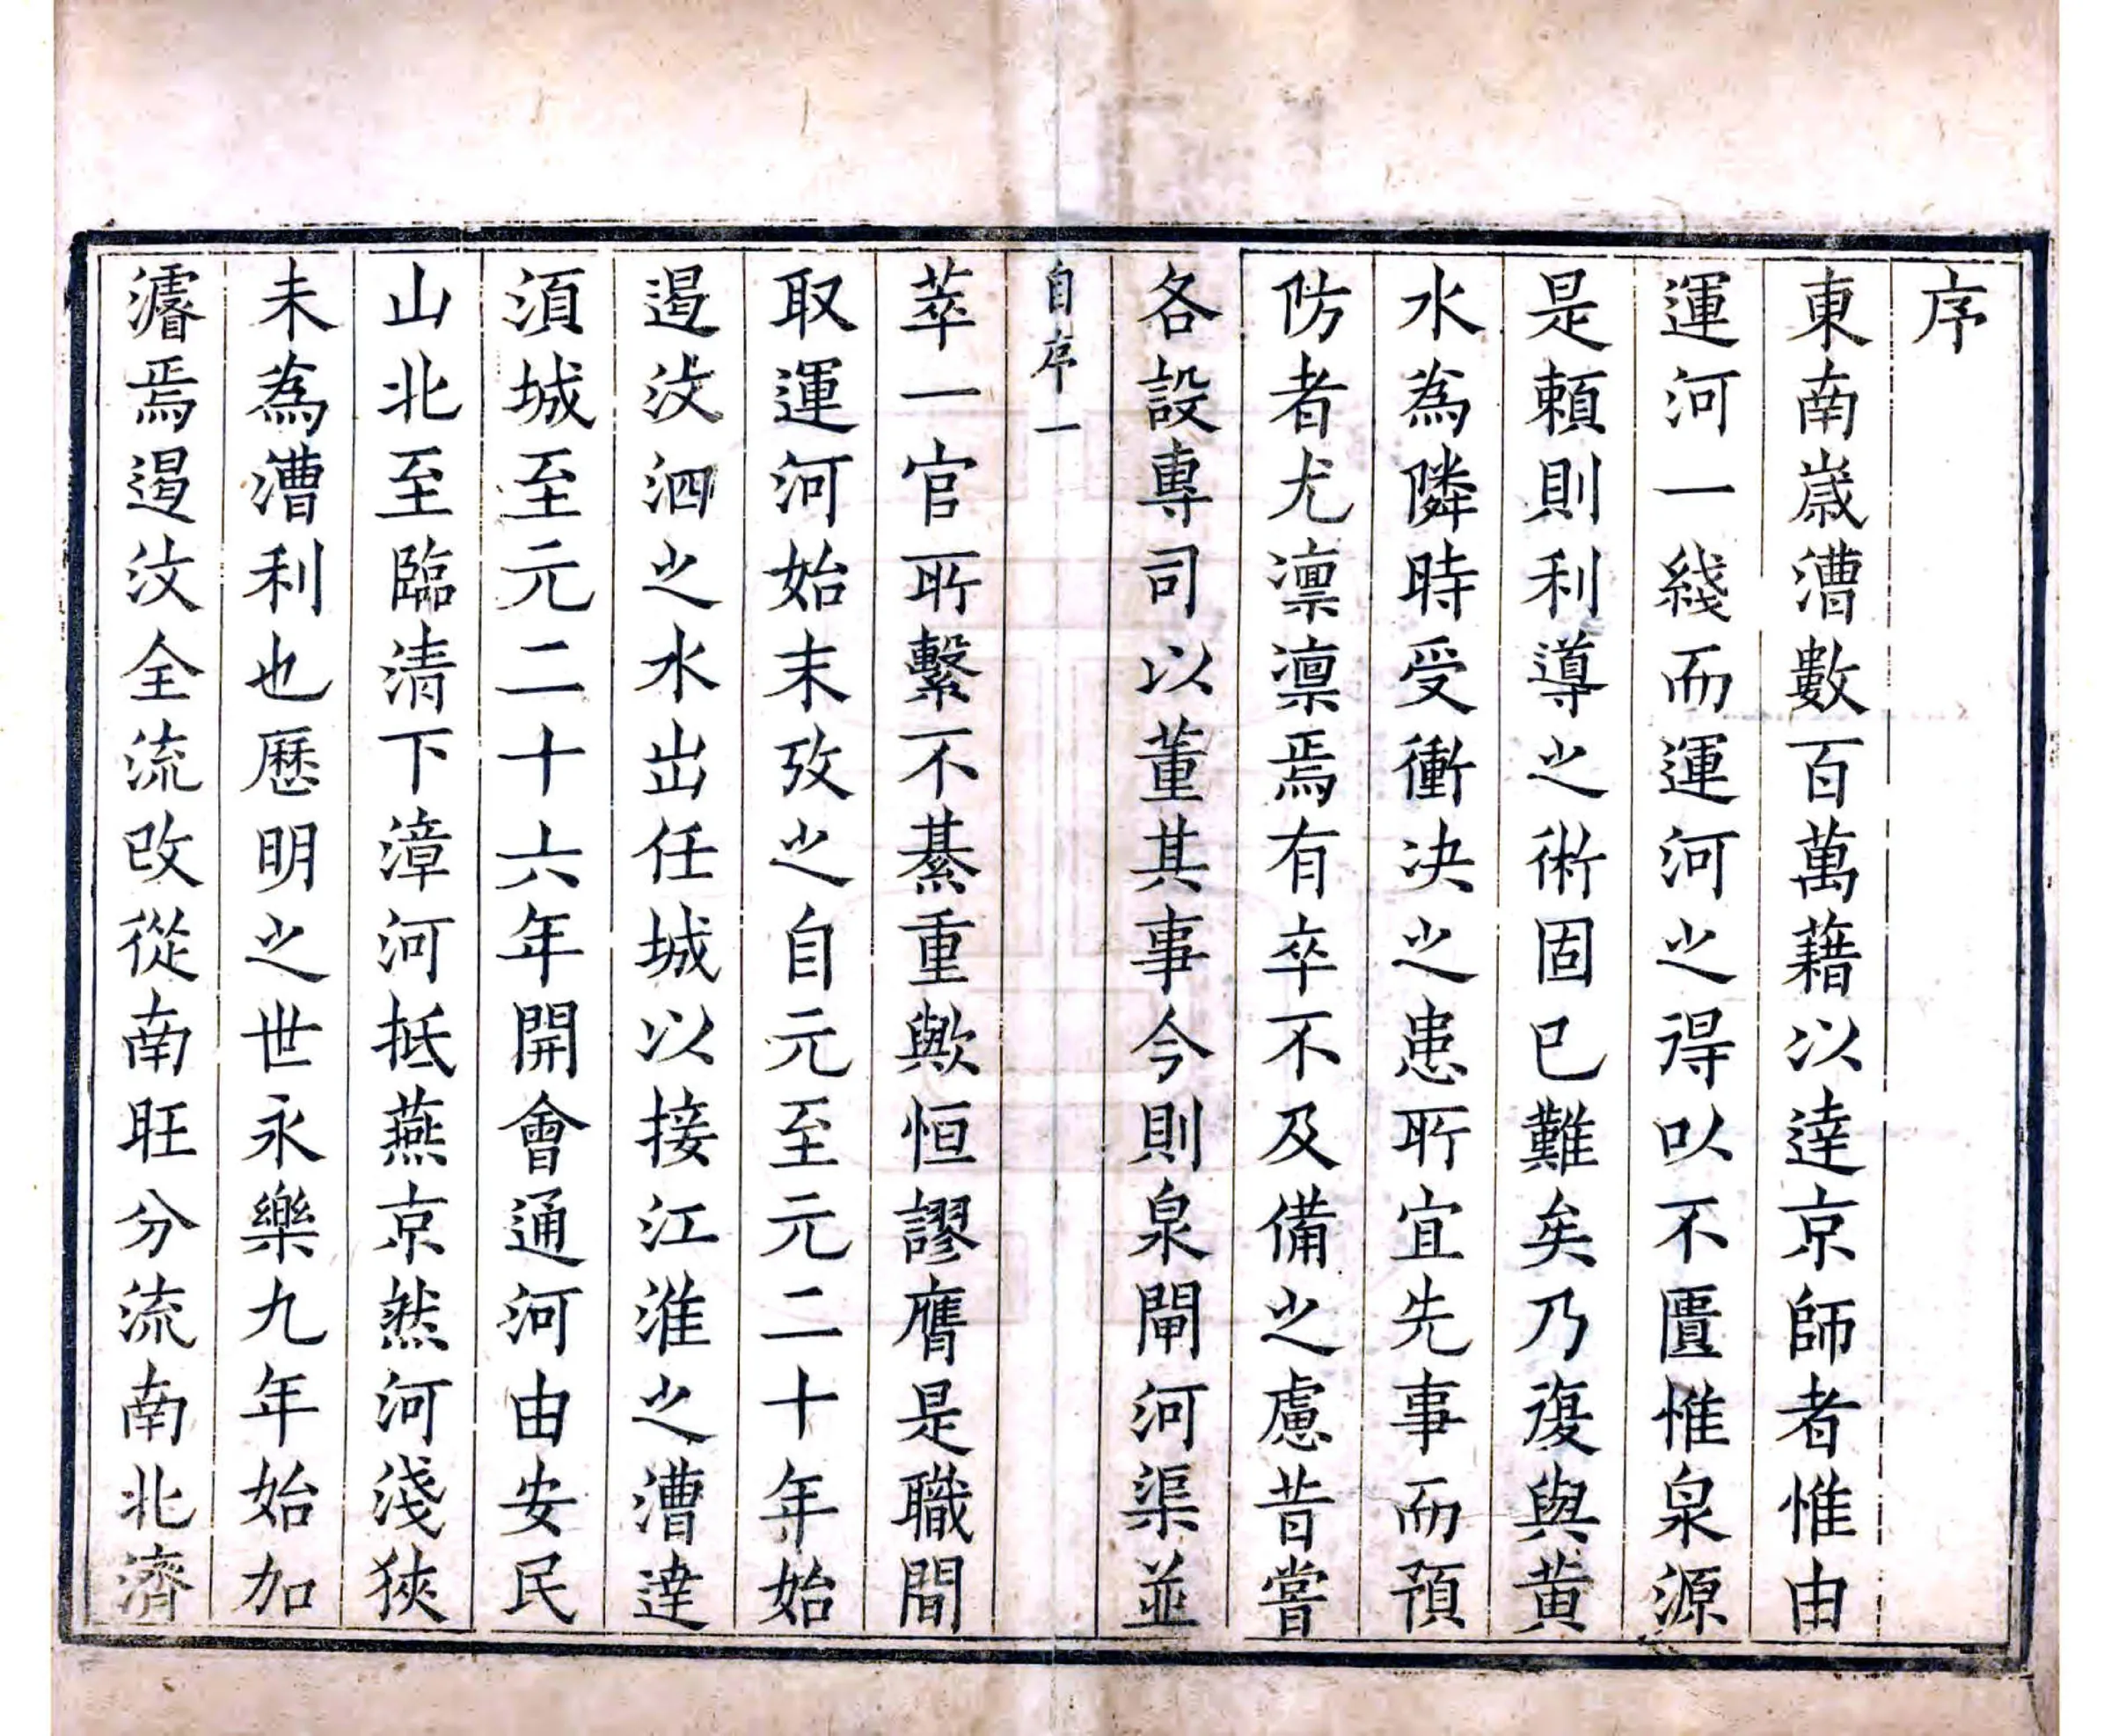 序
東南嵗漕數百萬藉以達京師者惟由
運河一綫而運河之得以不匱惟泉源
是頼則利導之術固已難矣乃復與黄
水為隣時受衝决之患所宜先事而預
防者尤凛凛焉有卒不及備之慮昔嘗
各設專司以董其事今則泉閘河渠並
自序一
萃一官所繫不綦重歟恒謬膺是職間
取運河始末攷之自元至元二十年始
遏汶泗之水出任城以接江淮之漕達
須城至元二十六年開會通河由安民
山北至臨清下漳河抵燕京然河淺狹
未為漕利也歷明之世永樂九年始加
濬焉遏汶全流改從南旺分流南北濟